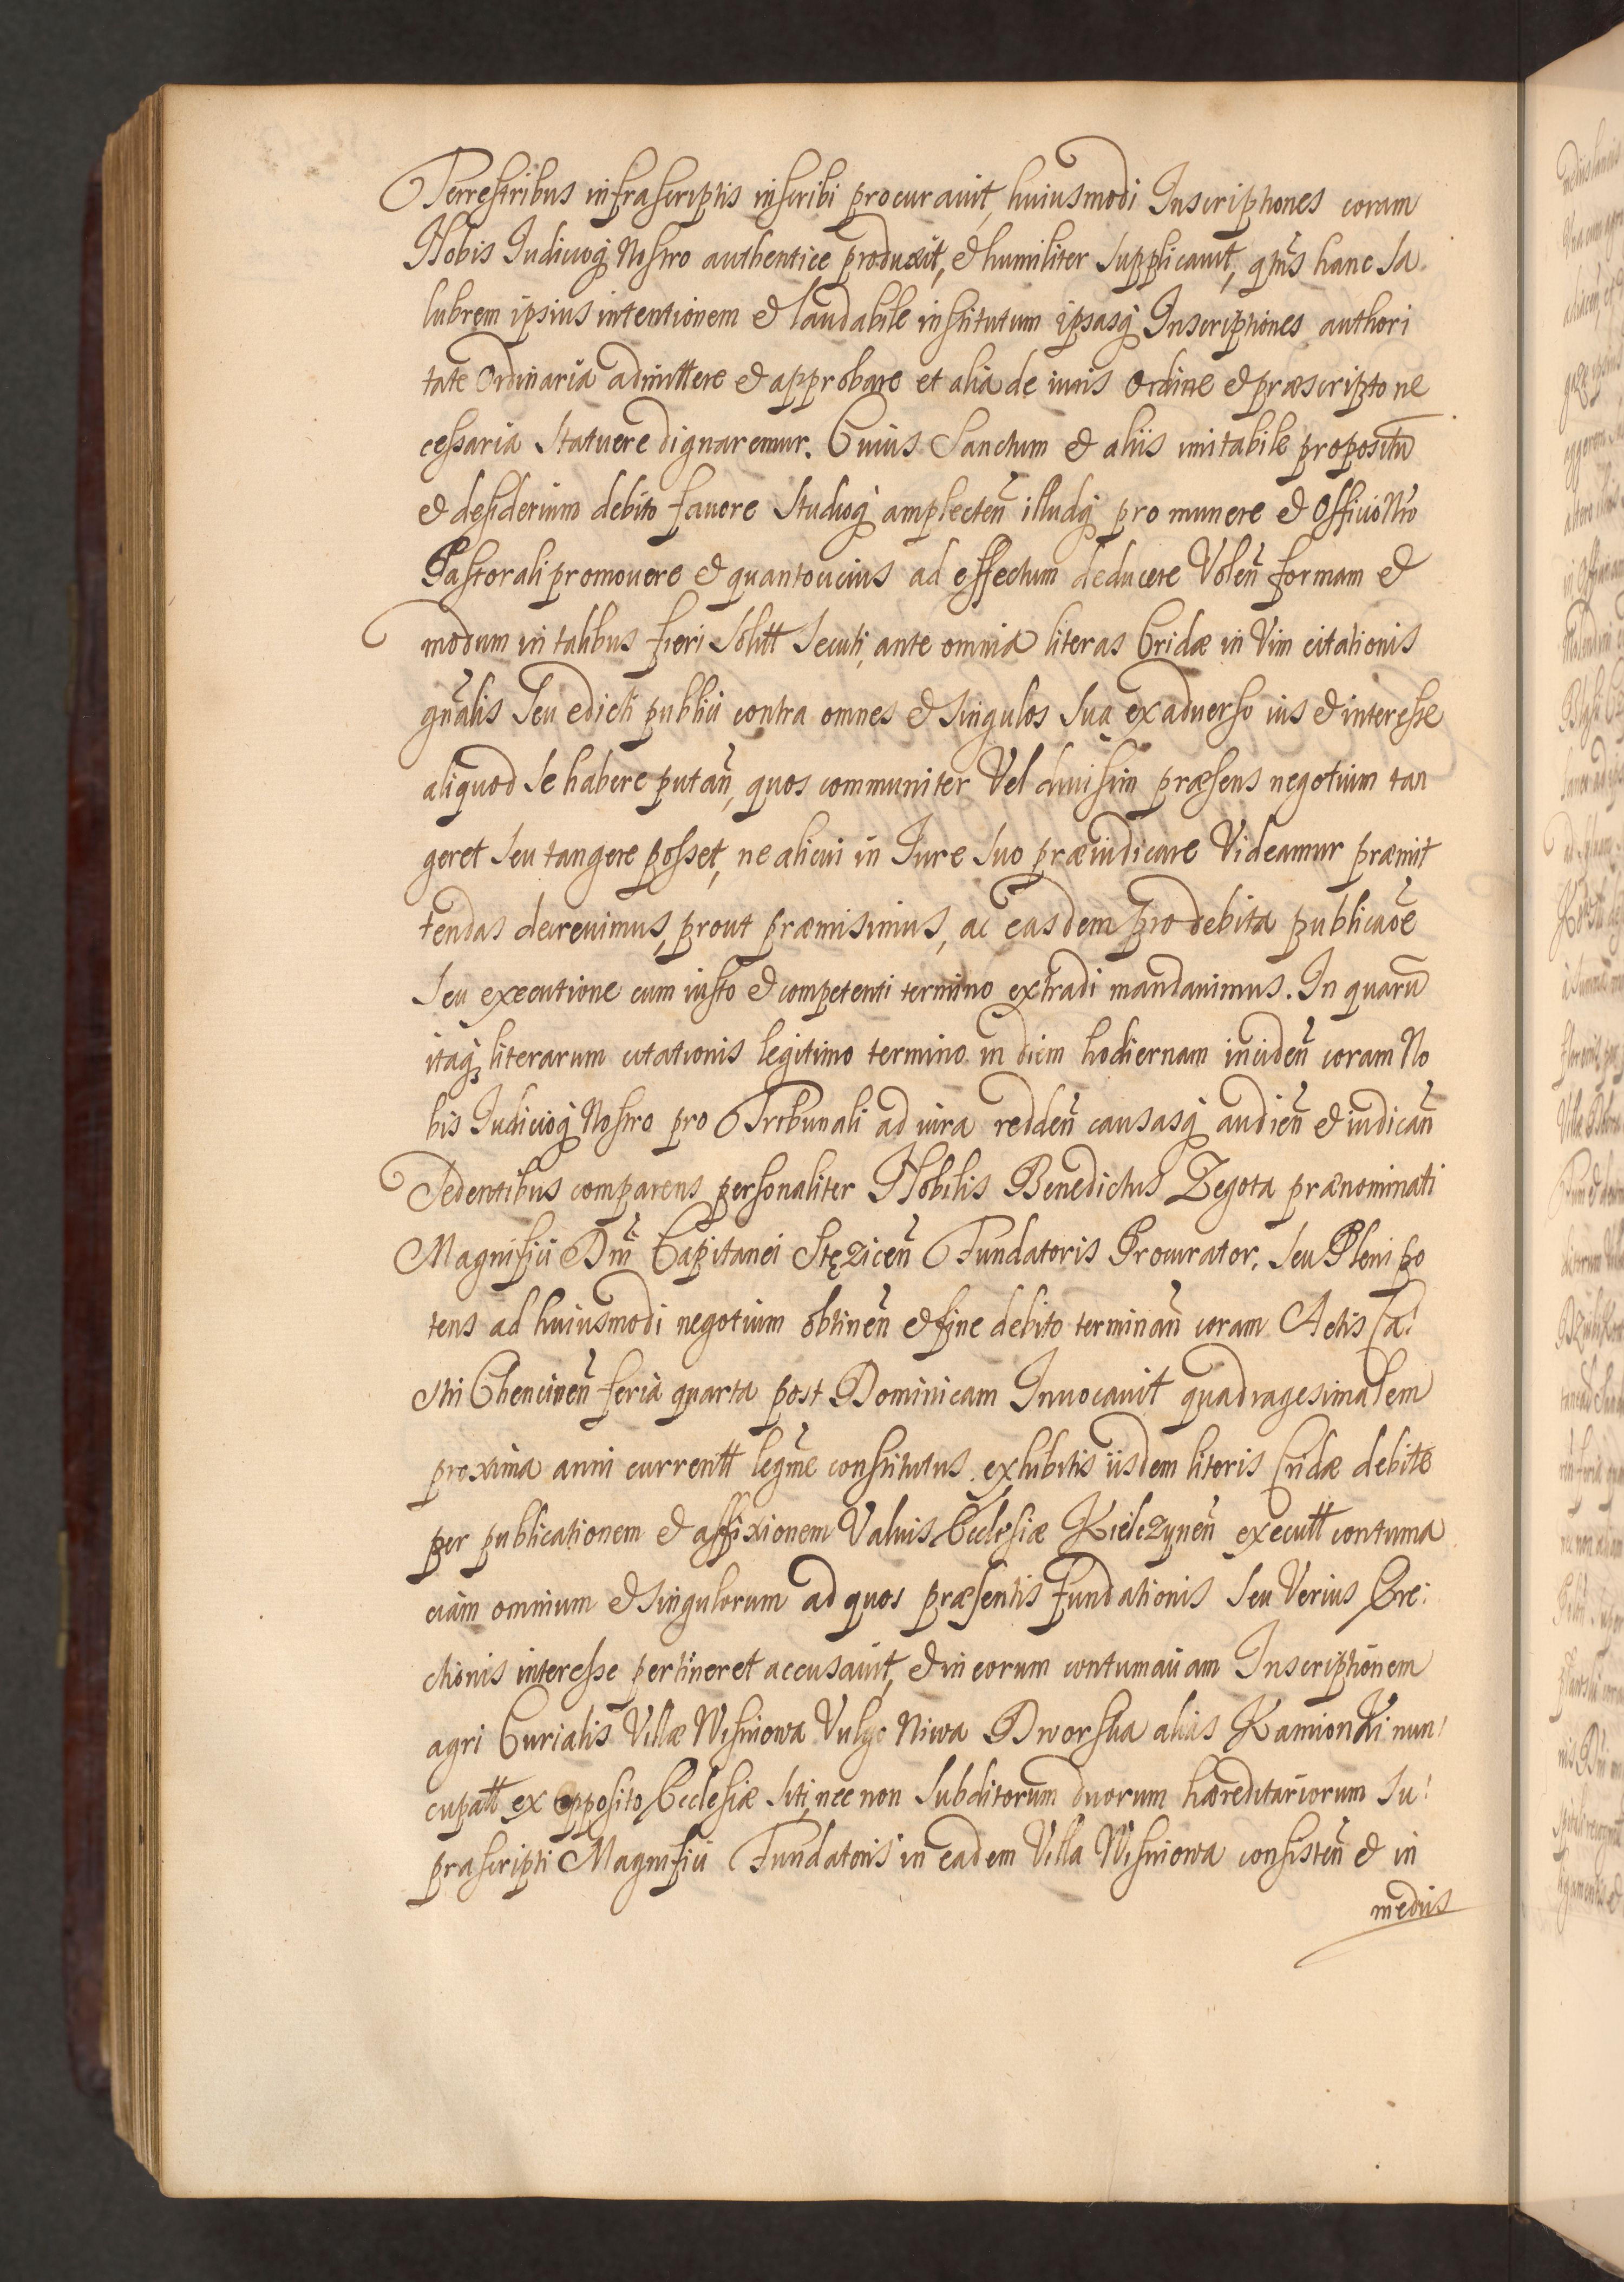 Terrestribus infrascriptis inscribi procurauit, huiusmodi Inscriptiones coram
Nobis Iudicioq Nostro authentice produxit, & humiliter supplicauit, qtñs hanc sa
lubrem ipsius intentionem & laudabile institutum ipsasq Inscriptiones authori
tate Ordinaria admittere & approbare et alia de iuris ordine & præscripto ne
cessaria statuere dignaremur. Cuius Sanctum & aliis imitabile propositũ
& desiderium debito fauore studioq amplecteñ illudq pro munere & Officio Nrõ
Pastorali promouere & quantocius ad effectum deducere Voleñ formam &
modum in talibus fieri solitt secuti, ante omnia literas Cridæ in Vim citationis
gñalis seu edicti publici contra omnes & singulos sua ex aduerso ius & interesse
aliquod se habere putañ, quos communiter Vel diuisim præsens negotium tan
geret seu tangere posset, ne alicui in Iure suo præiudicare Videamur præmit
tendas decreuimus, prout præmisimus, ac easdem pro debita publicaõe
seu executione cum iusto & competenti termino extradi mandauimus. In quarũ
itaq literarum citationis legitimo termino in diem hodiernam incideñ coram No
bis Iudicioq Nostro pro Tribunali ad iura reddeñ causasq audieñ & iudicañ
Sedentibus comparens personaliter Nobilis Benedictus Zegota prænominati
Magnifici Dñi Capitanei Stęziceñ Fundatoris Procurator, seu Plenipo
tens ad huiusmodi negotium obtineñ & fine debito terminañ coram Actis Ca:
stri Chencineñ feria quarta post Dominicam Inuocauit quadragesimalem
proxima anni currentt legm̃e constitutus exhibitis iisdem literis Cridæ debite
per publicationem & affixionem Valuis Ecclesiæ Kielczyneñ executt contuma
ciam omnium & singulorum ad quos præsentis fundationis seu Verius Ere:
ctionis interesse pertineret accusauit, & in eorum contumaciam Inscriptionem
agri Curialis Villæ Wisniowa Vulgo Niwa Dworska alias Kamionki nun:
cupatt ex opposito Ecclesiæ siti, nec non subditorum duorum hæreditariorum su:
prascripti Magnifici Fundatoris in eadem Villa Wisniowa consisteñ & in
mediis